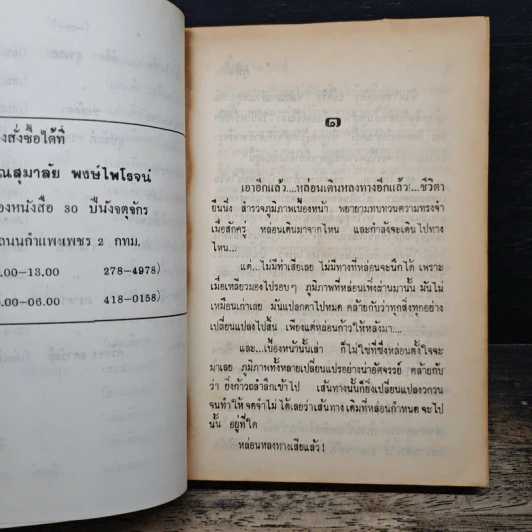 งสั่งซื้อได้ที่
ณสุมาลัย พงษ์ไพโรจน์
องหนังสือ 30 ปีนังจตุจักร
ถนนกำแพงเพชร 2 กทม.
.00-13.00 278-4978)
0.00-06.00 418-0158)
๑
เอาอีกแล้ว...หล่อนเดินหลงทางอีกแล้ว!...ชีวิตา
ยืนนิ่ง สำรวจภูมิภาพเบื้องหน้า พยายามทบทวนความทรงจำ
เมื่อสักครู่ หล่อนเดินมาจากไหน และกำลังจะเดินไปทาง
ไหน...
แต่...ไม่มีท่าเสียเลย ไม่มีทางที่หล่อนจะนึกได้ เพราะ
เมื่อเหลียวมองไปรอบๆ ภูมิภาพที่หล่อนเพิ่งผ่านมานั้น มันไม่
เหมือนเก่าเลย มันแปลกตาไปหมด คล้ายกับว่าทุกสิ่งทุกอย่าง
เปลี่ยนแปลงไปสิ้น เพียงแต่หล่อนก้าวให้หลังมา....
และ...เบื้องหน้านั้นเล่า ก็ไม่ใช่ที่ซึ่งหล่อนตั้งใจจะ
มาเลย ภูมิภาพทั้งหลายเปลี่ยนแปรอย่างน่าอัศจรรย์ คล้ายกับ
ว่า ยิ่งก้าวถลำลึกเข้าไป เส้นทางนั้นก็ยิ่งเปลี่ยนแปลงวกวน
จนทำให้จดจำไม่ได้เลยว่าเส้นทางเดิมที่หล่อนกำหนดจะไป
นั้น อยู่ที่ใด
หล่อนหลงทางเสียแล้ว!